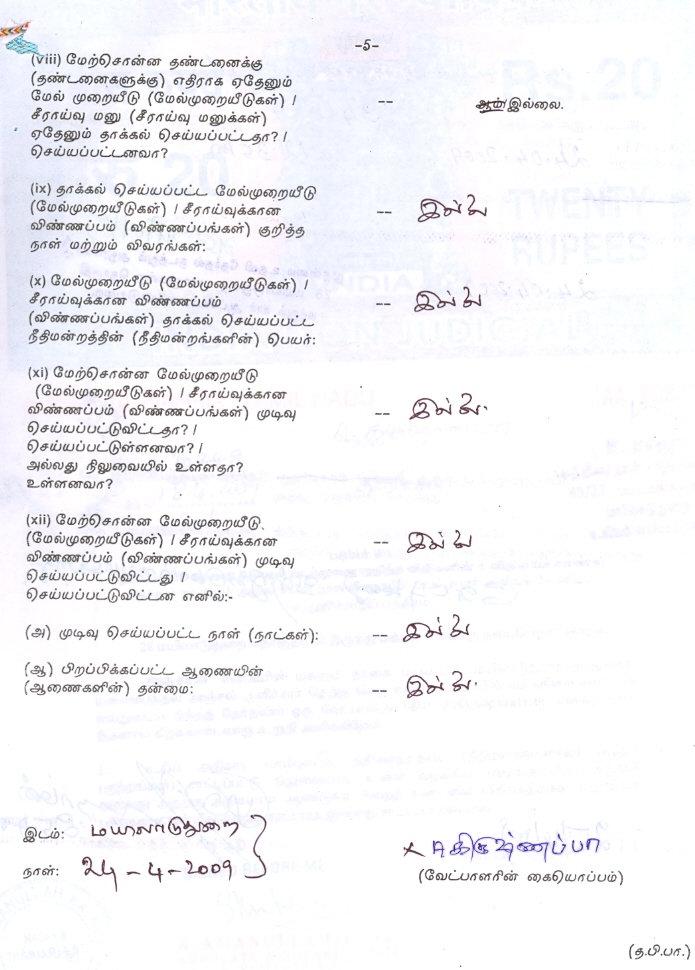 -5-
(viii) மேற்சொன்ன தண்டனைக்கு
(தண்டனைகளுக்கு) எதிராக ஏதேனும்
மேல் முறையீடு (மேல்முறையீடுகள்) / -- ஆம்/இல்லை.
சீராய்வு மனு (சீராய்வு மனுக்கள்)
ஏதேனும் தாக்கல் செய்யப்பட்டதா? /
செய்யப்பட்டனவா?
(ix) தாக்கல் செய்யப்பட்ட மேல்முறையீடு
(மேல்முறையீடுகள்) / சீராய்வுக்கான -- இல்லை
விண்ணப்பம் (விண்ணப்பங்கள்) குறித்த
நாள் மற்றும் விவரங்கள்:
(x) மேல்முறையீடு (மேல்முறையீடுகள்) /
சீராய்வுக்கான விண்ணப்பம் -- இல்லை
(விண்ணப்பங்கள்) தாக்கல் செய்யப்பட்ட
நீதிமன்றத்தின் (நீதிமன்றங்களின்) பெயர்:
(xi) மேற்சொன்ன மேல்முறையீடு
(மேல்முறையீடுகள்) / சீராய்வுக்கான
விண்ணப்பம் (விண்ணப்பங்கள்) முடிவு -- இல்லை.
செய்யப்பட்டுவிட்டதா? /
செய்யப்பட்டுள்ளனவா? /
அல்லது நிலுவையில் உள்ளதா?
உள்ளனவா?
(xii) மேற்சொன்ன மேல்முறையீடு
(மேல்முறையீடுகள்) / சீராய்வுக்கான -- இல்லை
விண்ணப்பம் (விண்ணப்பங்கள்) முடிவு
செய்யப்பட்டுவிட்டது /
செய்யப்பட்டுவிட்டன எனில்:-
(அ) முடிவு செய்யப்பட்ட நாள் (நாட்கள்): -- இல்லை
(ஆ) பிறப்பிக்கப்பட்ட ஆணையின்
(ஆணைகளின்) தன்மை: -- இல்லை.
இடம்: மயிலாடுதுறை
நாள்: 24-4-2009
(வேட்பாளரின் கையொப்பம்)
(த.பி.பா.)